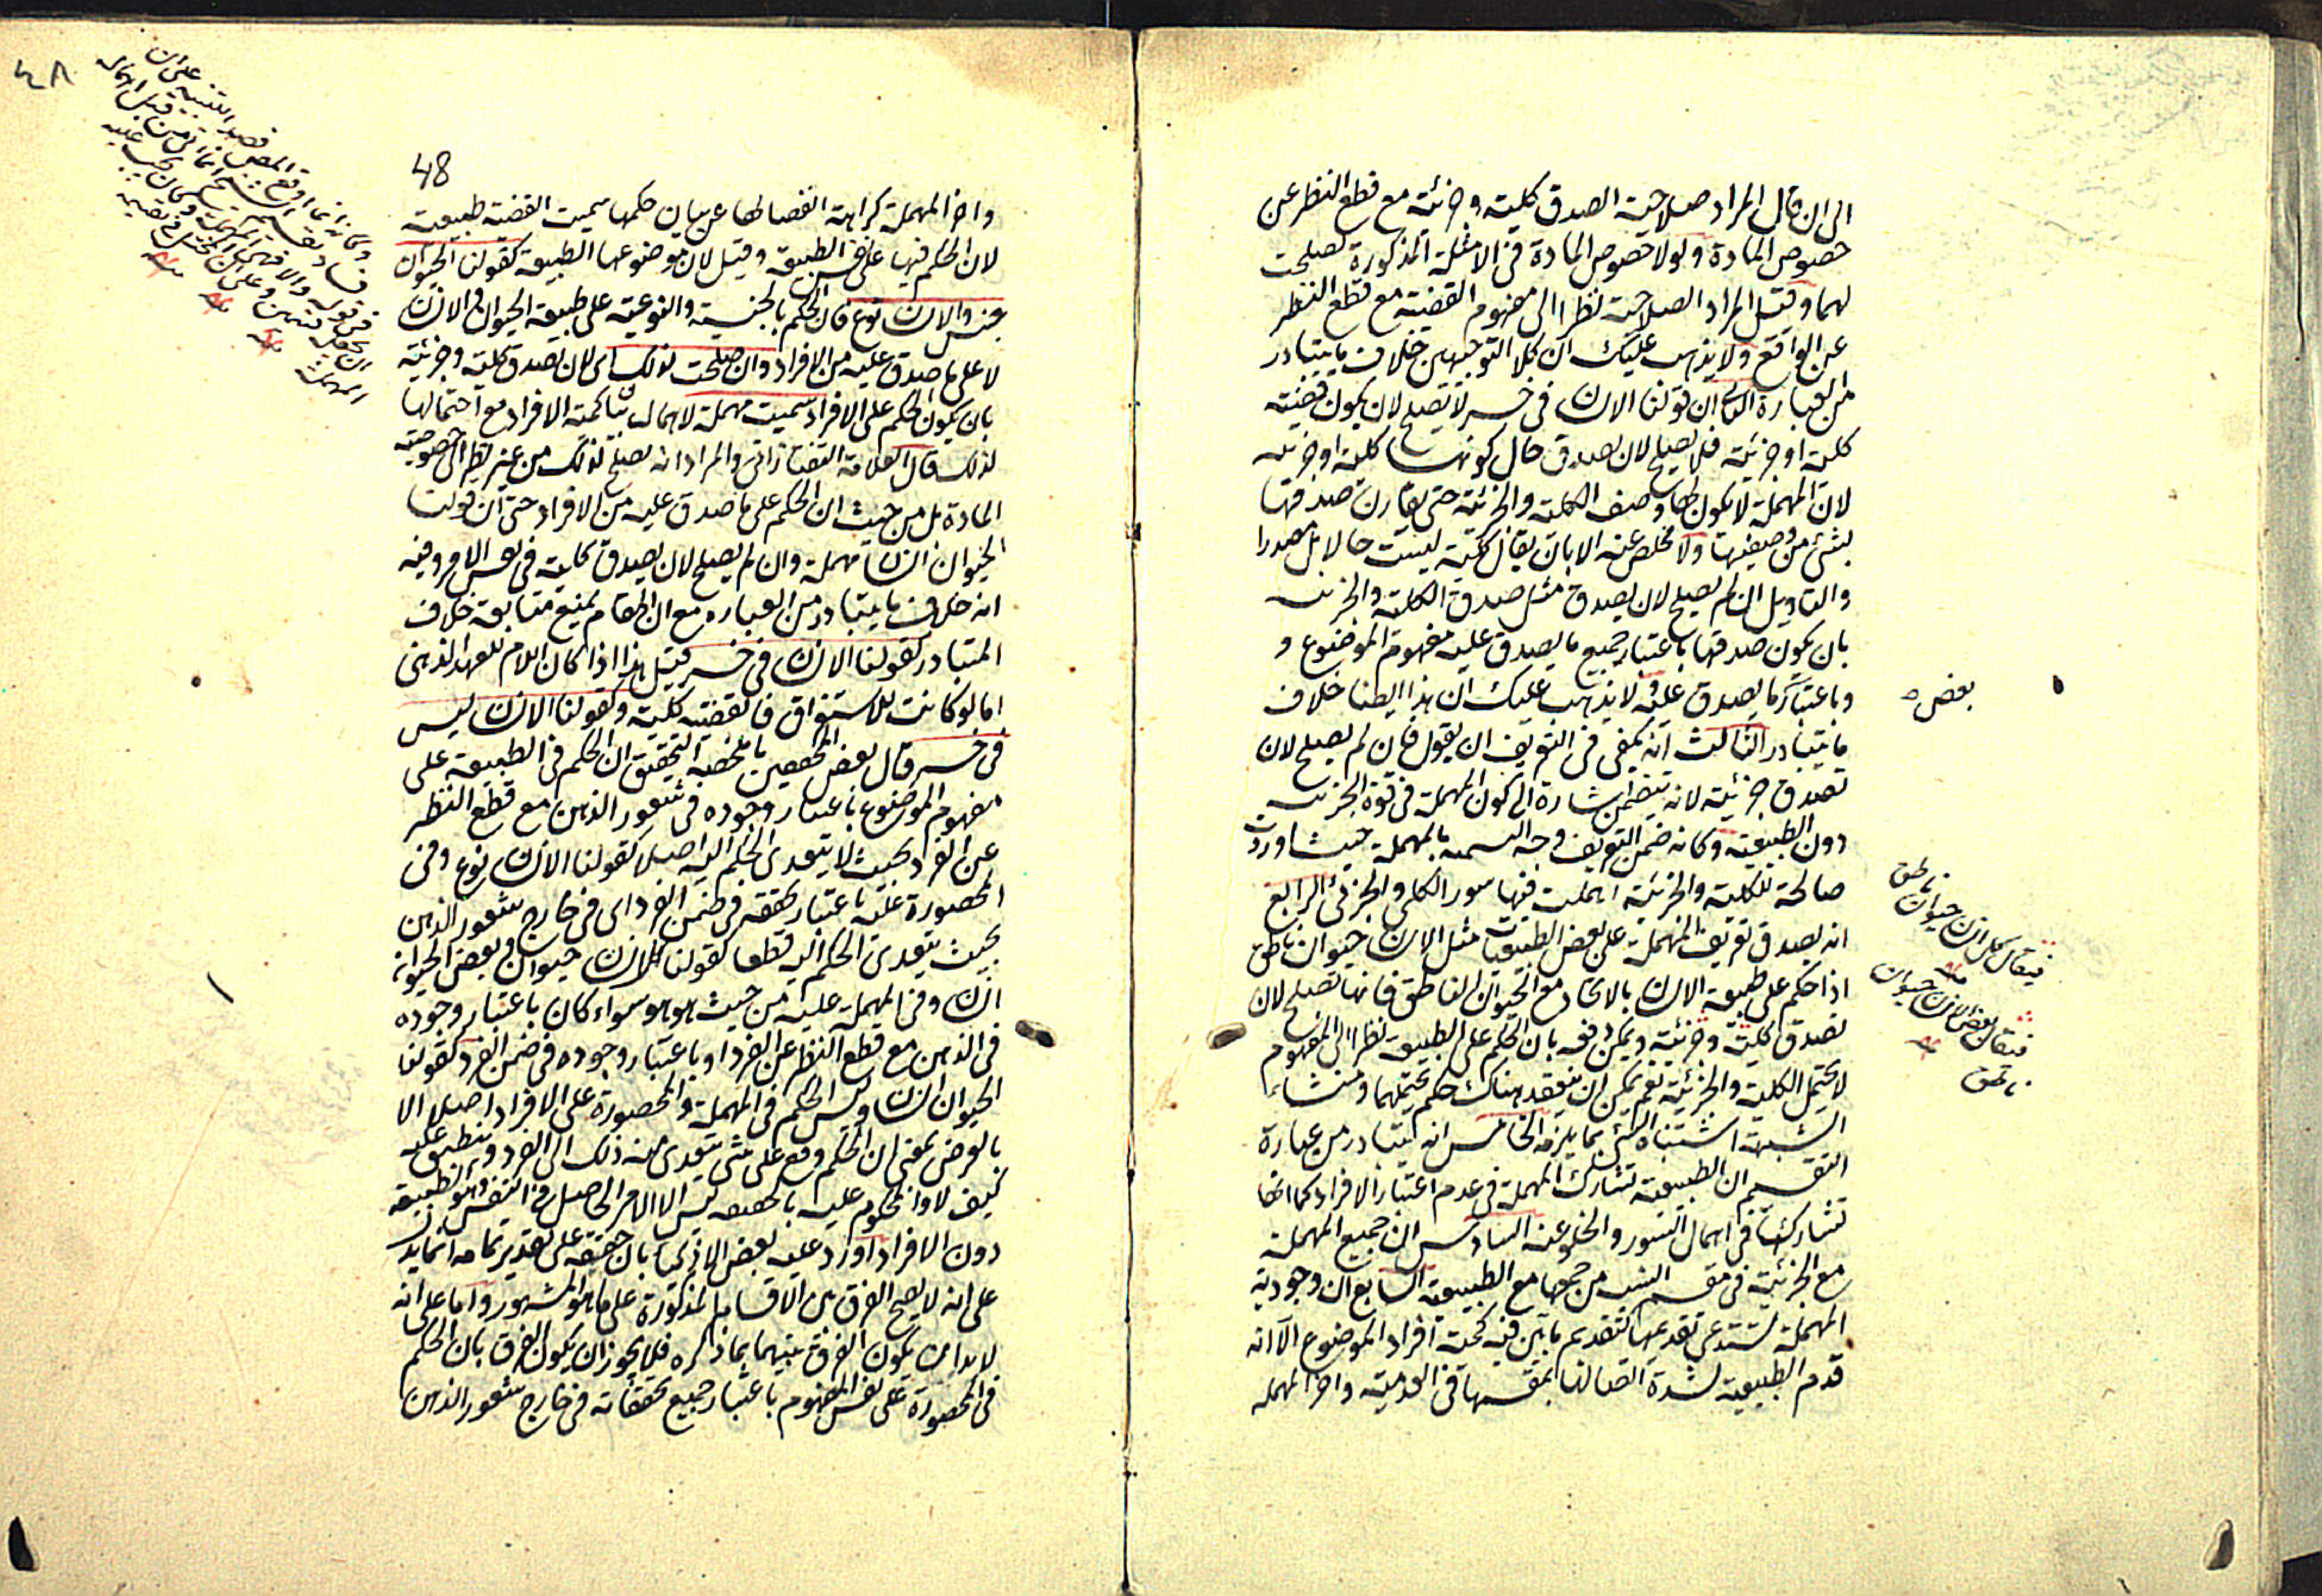 الى ان قال المراد صلاحية الصدق كلية وجزئية مع قطع النظر عن
خصوص المادة ولولا خصوص المادة فى الامثلة المذكورة لصلحت
لهما وقيل المراد الصلاحية نظرا الى مفهوم القضية مع قطع النظر
عن الواقع ولا يذهب عليك ان كلا التوجيهين خلاف ما يتبادر
من العبارة الثانى ان قولنا الانسان فى خسر لا تصلح لان يكون قضية
كلية او جزئية فلا يصلح لان يصدق حال كونها كلية او جزئية
لان المهملة لا يكون لها وصف الكلية والجزئية حتى يقارن صدقها
بشئ من وصفيهما ولا مخلص عنه الا بان يقال كلية ليست حالا بل مصدرا
والتاويل ان لم يصلح لان يصدق مثل صدق الكلية والجزئية
بان يكون صدقها باعتبار جميع ما يصدق عليه مفهوم الموضوع و
وباعتبار ما يصدق عليه ولا يذهب عليك ان هذا ايضا خلاف
بعض
ما يتبادر الثالث انه يكفى فى التعريف ان يقول فان لم يصلح لان
تصدق جزئية لانه يتضمن اشارة الى كون المهملة فى قوة الجزئية
دون الطبيعية وكانه ضمن التعريف وجه التسمية بالمهملة حيث اوردت
صالحة للكلية والجزئية اهملت فيها سور الكلى والجزئى الرابع
انه يصدق تعريف المهملة على بعض الطبيعيات مثل الانسان حيوان ناطق
فيقال كل انسان حيوان ناطق
اذا حكم على طبيعة الانسان بالاتحاد مع الحيوان الناطق فانها تصلح لان
فيقال بعض الانسان حيوان
ناطق
تصدق كلية وجزئية ويمكن دفعه بان الحكم على الطبيعة نظرا الى المفهوم
لا يحتمل الكلية والجزئية نعم يمكن ان ينعقد هناك حكم يحتملهما ومنشاء
الشبهة اشتباه الشئ بما يلزمه الخامس انه يتبادر من عبارة
التقسيم ان الطبيعية تشارك المهملة فى عدم اعتبار الافراد كما انها
تشاركها فى اهمال السور والخلو عنه السادس ان جميع المهملة
مع الجزئية فى مقسم انسب من جمعها مع الطبيعية السابع ان وجودية
المهملة تستدعى تقدمها كتقديم ما بين فيه كمية افراد الموضوع الا انه
قدم الطبيعية لشدة اتصالها بمقسمها فى العدمية واخر المهملة
48
واخر المهملة كراهة انفصالها عن بيان حكمها سميت القضية طبيعية
لان الحكم فيها على نفس الطبيعة وقيل لان موضوعها الطبيعة كقولنا الحيوان
جنس والانسان نوع فان الحكم بالجنسية والنوعية على طبيعة الحيوان والانسان
لا على ما صدق عليه من الافراد وان صلحت لذلك اى لان يصدق كلية وجزئية
بان يكون الحكم على الافراد سميت مهملة لاهمال بيان كمية الافراد مع احتمالها
لذلك قال العلامة التفتازانى والمراد انه يصلح لذلك من غير نظر الى خصوصية
المادة بل من حيث ان الحكم على ما صدق عليه من الافراد حتى ان قولنا
الحيوان انسان مهملة وان لم يصلح لان يصدق كلية فى نفس الامر وفيه
انه خلاف ما يتبادر من العبارة مع ان المقام يمنع متابعة خلاف
المتبادر كقولنا الانسان فى خسر قيل هذا اذا كان اللام للعهد الذهنى
اما لو كانت للاستغراق فالقضية كلية وكقولنا الانسان ليس
فى خسر قال بعض المحققين ما ملخصه التحقيق ان الحكم فى الطبيعية على
مفهوم الموضوع باعتبار وجوده فى شعور الذهن مع قطع النظر
عن الفرد بحيث لا يتعدى الحكم اليه اصلا كقولنا الانسان نوع وفى
المحصورة عليه باعتبار تحققه فى ضمن الفرد اى فى خارج شعور الذهن
بحيث يتعدى الحكم اليه قطعا كقولنا كل انسان حيوان وبعض الحيوان
انسان وفى المهملة عليه من حيث هو هو سواء كان باعتبار وجوده
فى الذهن مع قطع النظر عن الفرد او باعتبار وجوده فى ضمن الفرد كقولنا
الحيوان انسان وليس الحكم فى المهملة والمحصورة على الافراد اصلا الا
بالعرض بمعنى ان الحكم وقع على شئ يتعدى منه ذلك الى الفرد وينطبق عليه
كيف لا والمحكوم عليه بالحقيقة ليس الا الامر الحاصل فى النفس وهو الطبيعة
دون الافراد اورد عليه بعض الاذكيا بان حقيقة على تقدير تمامه انما يدل
على انه لا يصح الفرق بين الاقسام المذكورة على ما هو المشهور واما على انه
لا بد ان يكون الفرق بينهما بما ذكره فلا يجوز ان يكون الفرق بان الحكم
فى المحصورة على نفس المفهوم باعتبار جميع تحققاته فى خارج شعور الذهن